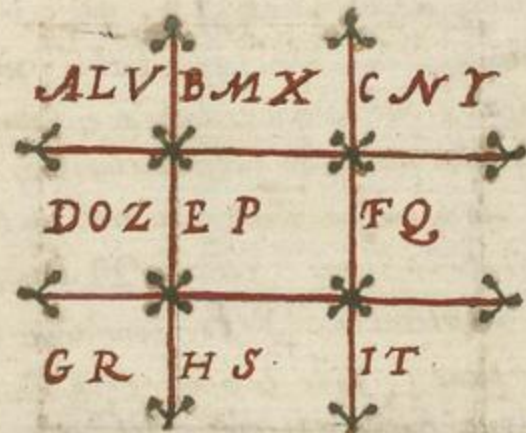 ALV BMX CNY
DOZ EP FQ
GR HS IT